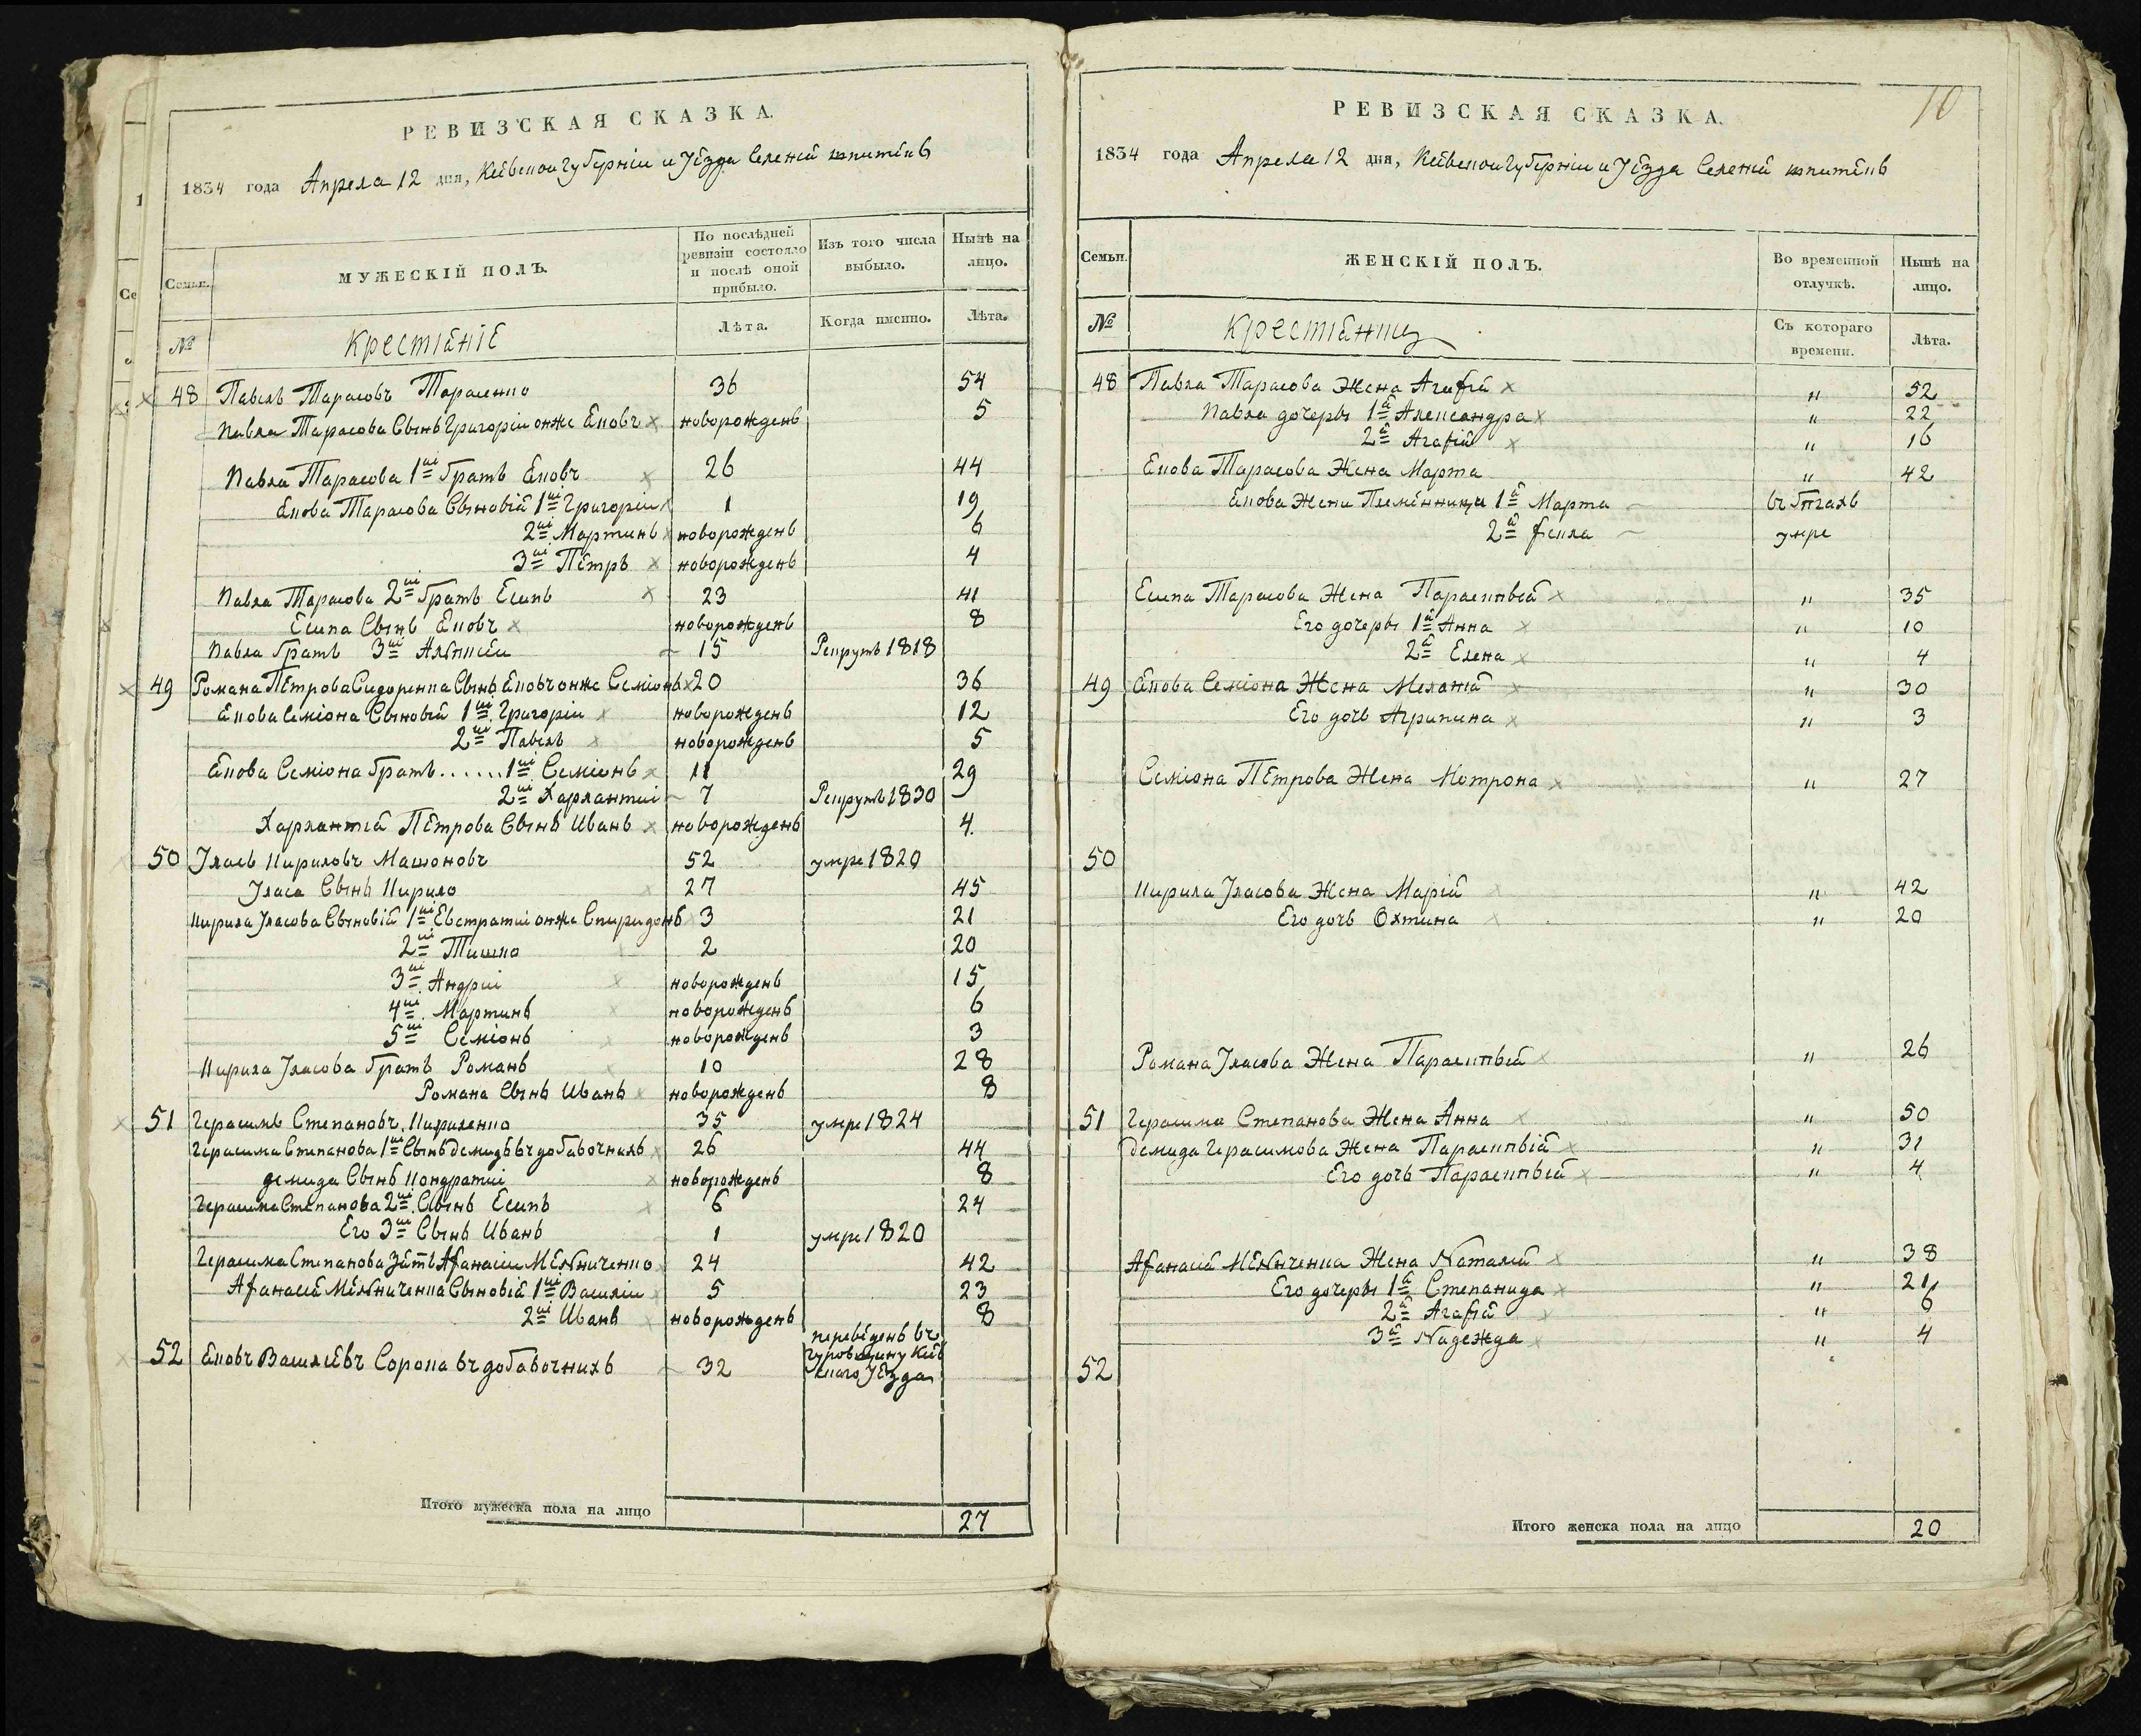 РЕВИЗСКАЯ СКАЗКА.
1834 года Апреля 12 дня, Кіевской Губерніи и Уезда Селенія
Семьи. МУЖЕСКІЙ ПОЛЪ. По послѣдней ревизіи состояло и послѣ оной прибыло. Изъ того числа выбыло. Нынѣ на лицо.
№ Крестіяніе Лѣта. Когда именно. Лѣта.
48 Павелъ Тарасовъ Тарасенко 36 54
Павла Тарасова Сынъ Григоріи онже Яковъ новорожденъ 5
Павла Тарасова 1ый братъ Яковъ 26 44
Якова Тарасова Сыновія 1ый Григоріи 1 19
2ый Мартинъ новорожденъ 6
3ый Петръ новорожденъ 4
Павла Тарасова 2ый братъ Есипъ 23 41
Есипа Сынъ Яковъ новорожденъ 8
Павла братъ 3ый Алексій 15 Рекрутъ 1818
49 Романа Петрова Сидоренка Сынъ Яковъ онже Семіонъ 20 36
Якова Семіона Сыновія 1ый Григоріи новорожденъ 12
2ый Павелъ новорожденъ 5
Якова Семіона братъ......1ый Семіонъ 11 29
2ый Харлантіи 7 Рекрутъ 1830
Харлантія Петрова Сынъ Иванъ новорожденъ 4.
50 Уласъ Кириловъ Машоновъ 52 умре 1820
Уласа Сынъ Кирило 27 45
Кирила Уласова Сыновія 1ый Евстратіи онже Спиридонъ 3 21
2ый Тишко 2 20
3ый Андріи новорожденъ 15
4ый Мартинъ новорожденъ 6
5ый Семіонъ новорожденъ 3
Кирила Уласова братъ Романъ 10 28
Романа Сынъ Иванъ новорожденъ 8
51 Герасимъ Степановъ Кириленко 35 умре 1824
Герасима Степанова 1ый Сынъ Демидъ въ добавочнихъ 26 44
Демида Сынъ Кондратіи новорожденъ 8
Герасима Степанова 2ый Сынъ Есипъ 6 24
Его 3ый Сынъ Иванъ 1 умре 1820
Герасима Степанова Зять Афанасіи Мельниченко 24 42
Афанасія Мельниченка Сыновія 1ый Василіи 5 23
2ый Иванъ новорожденъ 8
52 Яковъ Василіевъ Сорока въ добавочнихъ 32 переведенъ въ Гуровщину Кіевскаго Уезда
Итого мужеска пола на лицо 27
10
РЕВИЗСКАЯ СКАЗКА.
1834 года Апреля 12 дня, Кіевской Губерніи и Уезда Селенія
Семьи. ЖЕНСКІЙ ПОЛЪ. Во временной отлучкѣ. Нынѣ на лицо.
№ Крестіянки Съ котораго времени. Лѣта.
48 Павла Тарасова Жена Агафія " 52
Павла дочеры 1я Александра " 22
2я Агафія " 16
Якова Тарасова Жена Марта " 42
Якова Жени Племенници 1я Марта въ бегахъ
2я Фекла умре
Есипа Тарасова Жена Параскивія " 35
Его дочеры 1я Анна " 10
2я Елена " 4
49 Якова Семіона Жена Меланія " 30
Его дочь Агрипина " 3
Семіона Петрова Жена Мотрона " 27
50
Кирила Уласова Жена Марія " 42
Его дочь Охтина " 20
Романа Уласова Жена Параскивія " 26
51 Герасима Степанова Жена Анна " 50
Демида Герасимова Жена Параскивія " 31
Его дочь Параскивія " 4
Афанасія Мельниченка Жена Наталія " 38
Его дочеры 1я Степанида " 21
2я Агафія " 6
3я Надежда " 4
52
Итого женска пола на лицо 20